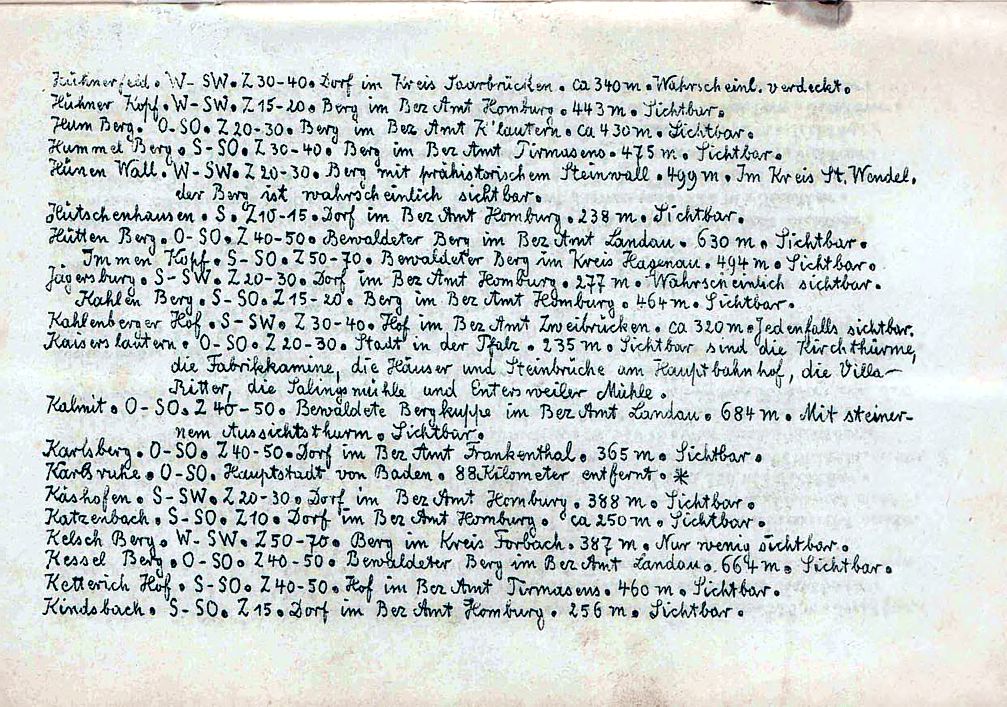 Hühnerfeld. W-SW. Z 30-40. Dorf im Kreis Saarbrücken. ca 340 m. Wahrscheinl. verdeckt.
Hühner Kopf. W-SW. Z 15-20. Berg im Bez Amt Homburg. 443 m. Sichtbar.
Hum Berg. O-SO. Z 20-30. Berg im Bez Amt K'lautern. ca 430 m. Sichtbar.
Hummel Berg. S-SO. Z 30-40. Berg im Bez Amt Pirmasens. 475 m. Sichtbar.
Hünen Wall. W-SW. Z 20-30. Berg mit prähistorischem Steinwall. 499 m. Im Kreis St. Wendel,
der Berg ist wahrscheinlich sichtbar.
Hütschenhausen. S. Z 10-15. Dorf im Bez Amt Homburg. 238 m. Sichtbar.
Hütten Berg. O-SO. Z 40-50. Bewaldeter Berg im Bez Amt Landau. 630 m. Sichtbar.
Immen Kopf. S-SO. Z 50-70. Bewaldeter Berg im Kreis Hagenau. 494 m. Sichtbar.
Jägersburg. S-SW. Z 20-30. Dorf im Bez Amt Homburg. 277 m. Wahrscheinlich sichtbar.
Kahlen Berg. S-SO. Z 15-20. Berg im Bez Amt Homburg. 464 m. Sichtbar.
Kahlenberger Hof. S-SW. Z 30-40. Hof im Bez Amt Zweibrücken. ca 320 m. Jedenfalls sichtbar.
Kaiserslautern. O-SO. Z 20-30. Stadt in der Pfalz. 235 m. Sichtbar sind die Kirchthürme,
die Fabrikkamine, die Häuser und Steinbrüche am Hauptbahnhof, die Villa-
Ritter, die Salingsmühle und Entersweiler Mühle.
Kalmit. O-SO. Z 40-50. Bewaldete Bergkuppe im Bez Amt Landau. 684 m. Mit steiner-
nem Aussichtsthurm. Sichtbar.
Karlsberg. O-SO. Z 40-50. Dorf im Bez Amt Frankenthal. 365 m. Sichtbar.
Karlsruhe. O-SO. Hauptstadt von Baden. 88 Kilometer entfernt. *
Käshofen. S-SW. Z 20-30. Dorf im Bez Amt Homburg. 388 m. Sichtbar.
Katzenbach. S-SO. Z 10. Dorf im Bez Amt Homburg. ca 250 m. Sichtbar.
Kelsch Berg. W-SW. Z 50-70. Berg im Kreis Forbach. 387 m. Nur wenig sichtbar.
Kessel Berg. O-SO. Z 40-50. Bewaldeter Berg im Bez Amt Landau. 664 m. Sichtbar.
Ketterich Hof. S-SO. Z 40-50. Hof im Bez Amt Pirmasens. 460 m. Sichtbar.
Kindsbach. S-SO. Z 15. Dorf im Bez Amt Homburg. 256 m. Sichtbar.